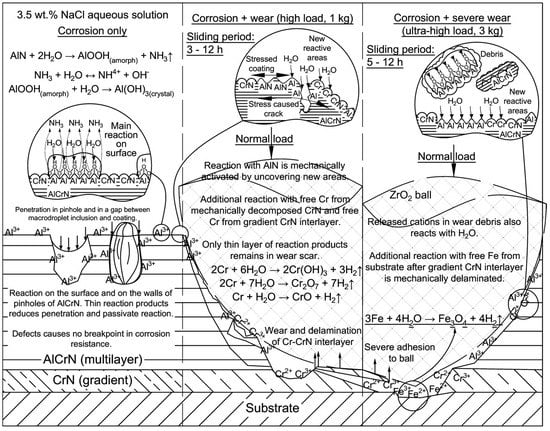 3.5 wt.% NaCl aqueous solution
Corrosion only
AlN + 2H2O → AlOOH(amorph) + NH3↑
NH3 + H2O ↔ NH4+ + OH-
AlOOH(amorph) + H2O → Al(OH)3(crystal)
NH3 NH3
NH3 NH3 NH3
H2O H2O H2O
Main
reaction
on
surface
CrN Al Al Al Al Al CrN
AlCrN
Penetration in pinhole and in a gap between
macrodroplet inclusion and coating.
Al3+ Al3+ Al3+ Al3+
Al3+
Reaction on the surface and on the walls of
pinholes of AlCrN. Thin reaction products
reduces penetration and passivate reaction.
Defects causes no breakpoint in corrosion
resistance.
AlCrN (multilayer)
CrN (gradient)
Substrate
Corrosion + wear (high load, 1 kg)
Sliding period:
3 - 12 h
New
reactive
areas
Stressed
coating
H2O
H2O
CrN AlN AlN Al
Stress caused
crack
AlCrN
Normal load
Reaction with AlN is mechanically
activated by uncovering new areas.
Additional reaction with free Cr from
mechanically decomposed CrN and free
Cr from gradient CrN interlayer.
Only thin layer of reaction products
remains in wear scar.
2Cr + 6H2O → 2Cr(OH)3 + 3H2↑
2Cr + 7H2O → Cr2O7 + 7H2↑
Cr + H2O → CrO + H2↑
Wear and delamination
of Cr-CrN interlayer
Al3+
Cr2+
Cr3+
Al3+
Cr2+ Cr3+
Corrosion + severe wear
(ultra-high load, 3 kg)
Sliding period:
5 - 12 h
Debris
H2O H2O
New
reactive
areas
CrN Al Al Al Al Al CrN
AlCrN
Normal load
ZrO2 ball
Released cations in wear debris also
reacts with H2O.
Additional reaction with free Fe from
substrate after gradient CrN interlayer
is mechanically delaminated.
3Fe + 4H2O → Fe3O4 + 4H2↑
Severe adhesion
to ball
Al3+
Al3+
Cr2+ Cr3+
Fe3+ Fe2+
Cr2+ Cr3+